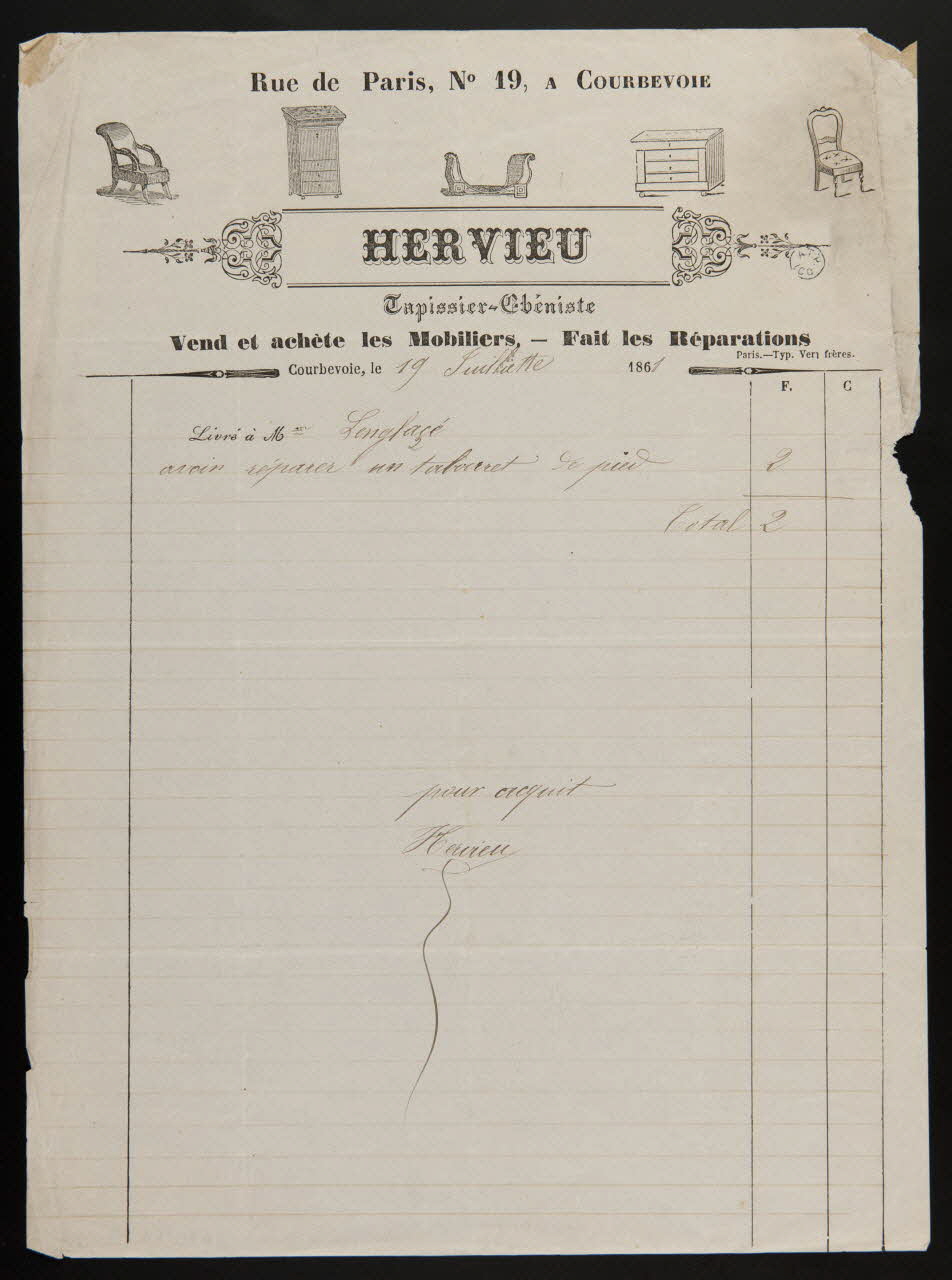 Rue de Paris, No 19, A COURBEVOIE
HERVIEU
Tapissier-Ebéniste
Vend et achète les Mobiliers, — Fait les Réparations
Paris.—Typ. Vert frères.
Courbevoie, le 19 Juillette 1861
F. C
Livré à Mme Lenglacé
avoir réparer un tabouret de pied 2
Total 2
pour acquit
Hervieu